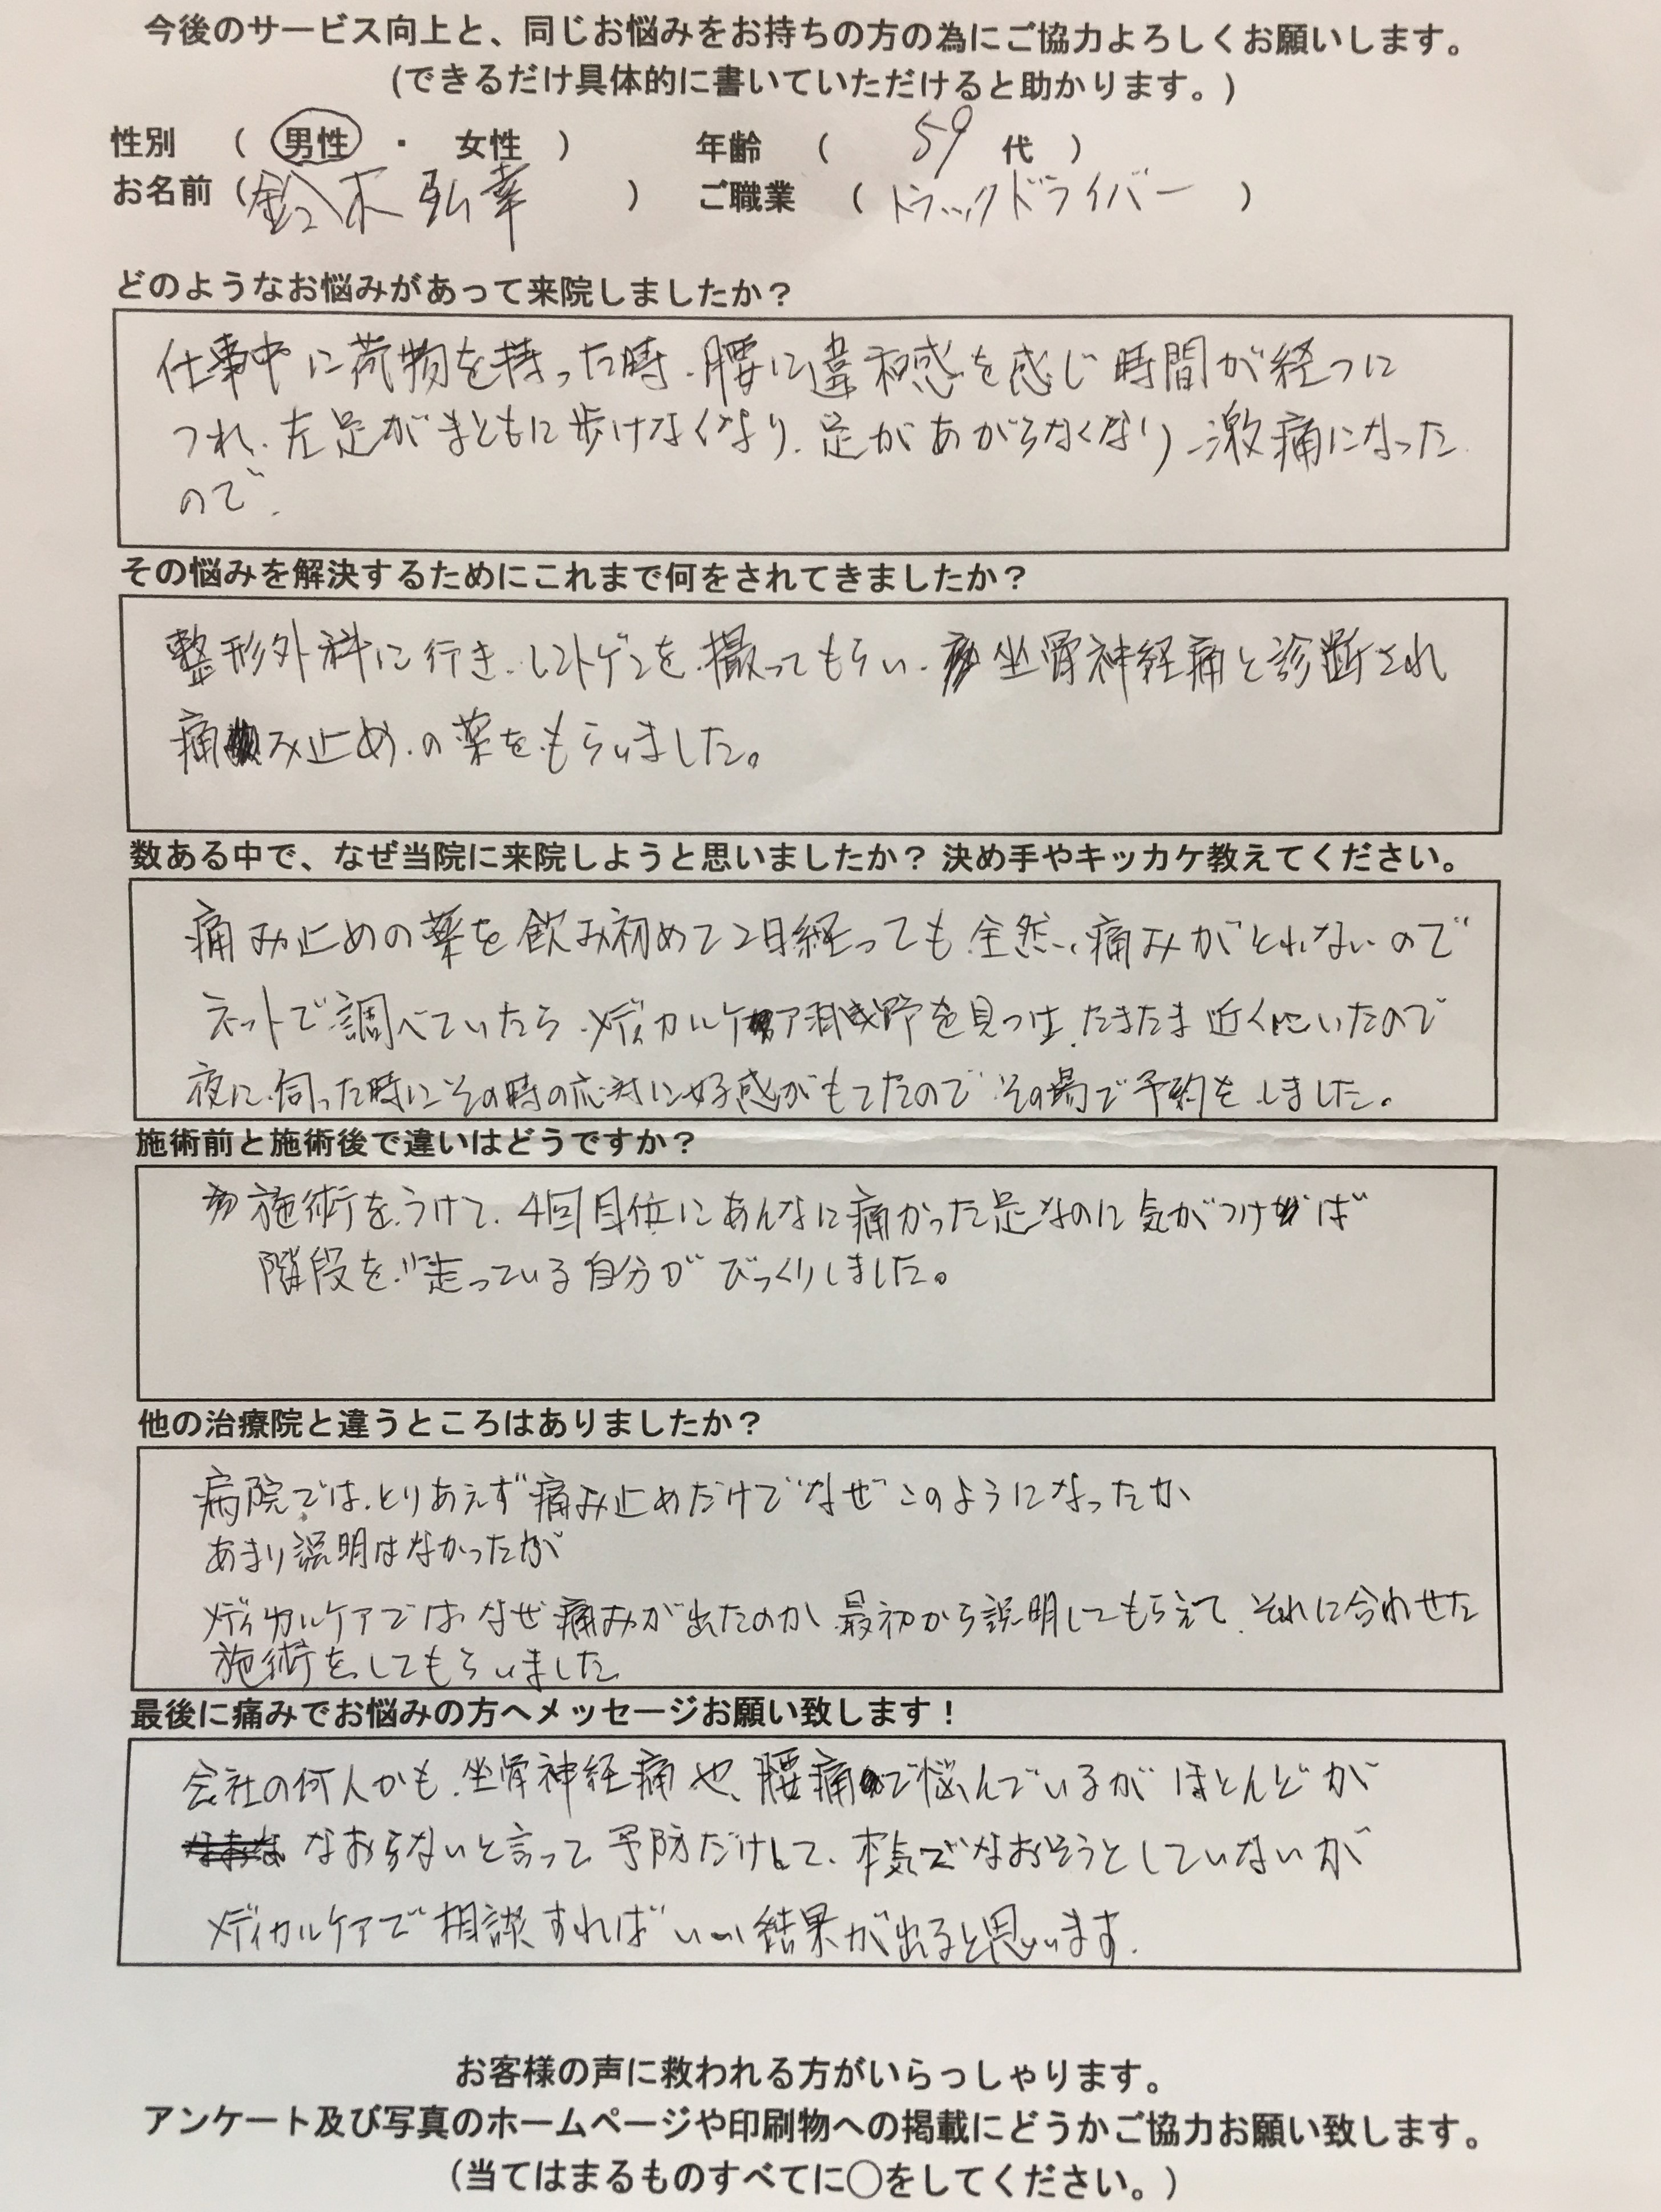 今後のサービス向上と、同じお悩みをお持ちの方の為にご協力よろしくお願いします。
(できるだけ具体的に書いていただけると助かります。)
性別 ( 男性 ・ 女性 ) 年齢 ( 59 代 )
お名前 ( 鈴木 弘幸 ) ご職業 ( トラックドライバー )
どのようなお悩みがあって来院しましたか？
仕事中に荷物を持った時、腰に違和感を感じ時間が経つに
つれ、左足がまともに歩けなくなり、足があがらなくなり、激痛になった
ので、
その悩みを解決するためにこれまで何をされてきましたか？
整形外科に行き、レントゲンを撮ってもらい、坐骨神経痛と診断され
痛み止めの薬をもらいました。
数ある中で、なぜ当院に来院しようと思いましたか？ 決め手やキッカケ教えてください。
痛み止めの薬を飲み初めて2日経っても全然、痛みがとれないので
ネットで調べていたら、メディカルケア を見つけ、たまたま近くにいたので
夜に伺った時にその時の応対に好感がもてたのでその場で予約をしました。
施術前と施術後で違いはどうですか？
施術をうけて、4回目位にあんなに痛かった足なのに気がつけば
階段を走っている自分がびっくりしました。
他の治療院と違うところはありましたか？
病院では、とりあえず痛み止めだけでなぜこのようになったか
あまり説明はなかったが
メディカルケアではなぜ痛みが出たのか最初から説明してもらえて、それに合わせた
施術をしてもらいました
最後に痛みでお悩みの方へメッセージお願い致します！
会社の何人かも、坐骨神経痛や、腰痛で悩んでいるがほとんどが
なおらないと言って予防だけして、本気でなおそうとしていないが
メディカルケアで相談すればいい結果が出ると思います。
お客様の声に救われる方がいらっしゃります。
アンケート及び写真のホームページや印刷物への掲載にどうかご協力お願い致します。
(当てはまるものすべてに○をしてください。)